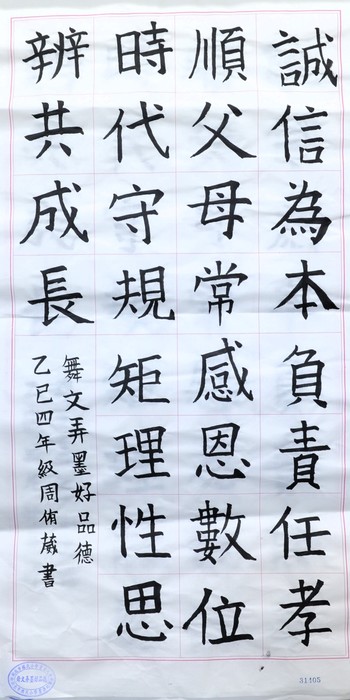 誠信為本負責任孝
順父母常感恩數位
時代守規矩理性思
辨共成長
舞文弄墨好品德
乙巳四年級周侑葳書
31405